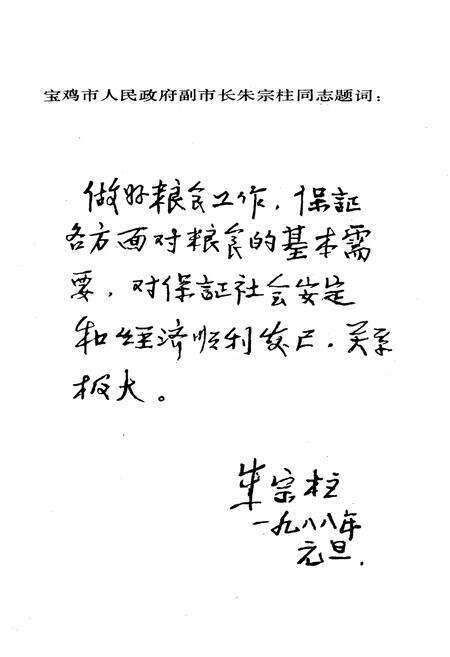 宝鸡市人民政府副市长朱宗柱同志题词：
做好粮食工作，保証
各方面对粮食的基本需
要，对保証社会安定
和经济顺利发展，关系
极大。
朱宗柱
一九八八年
元旦．